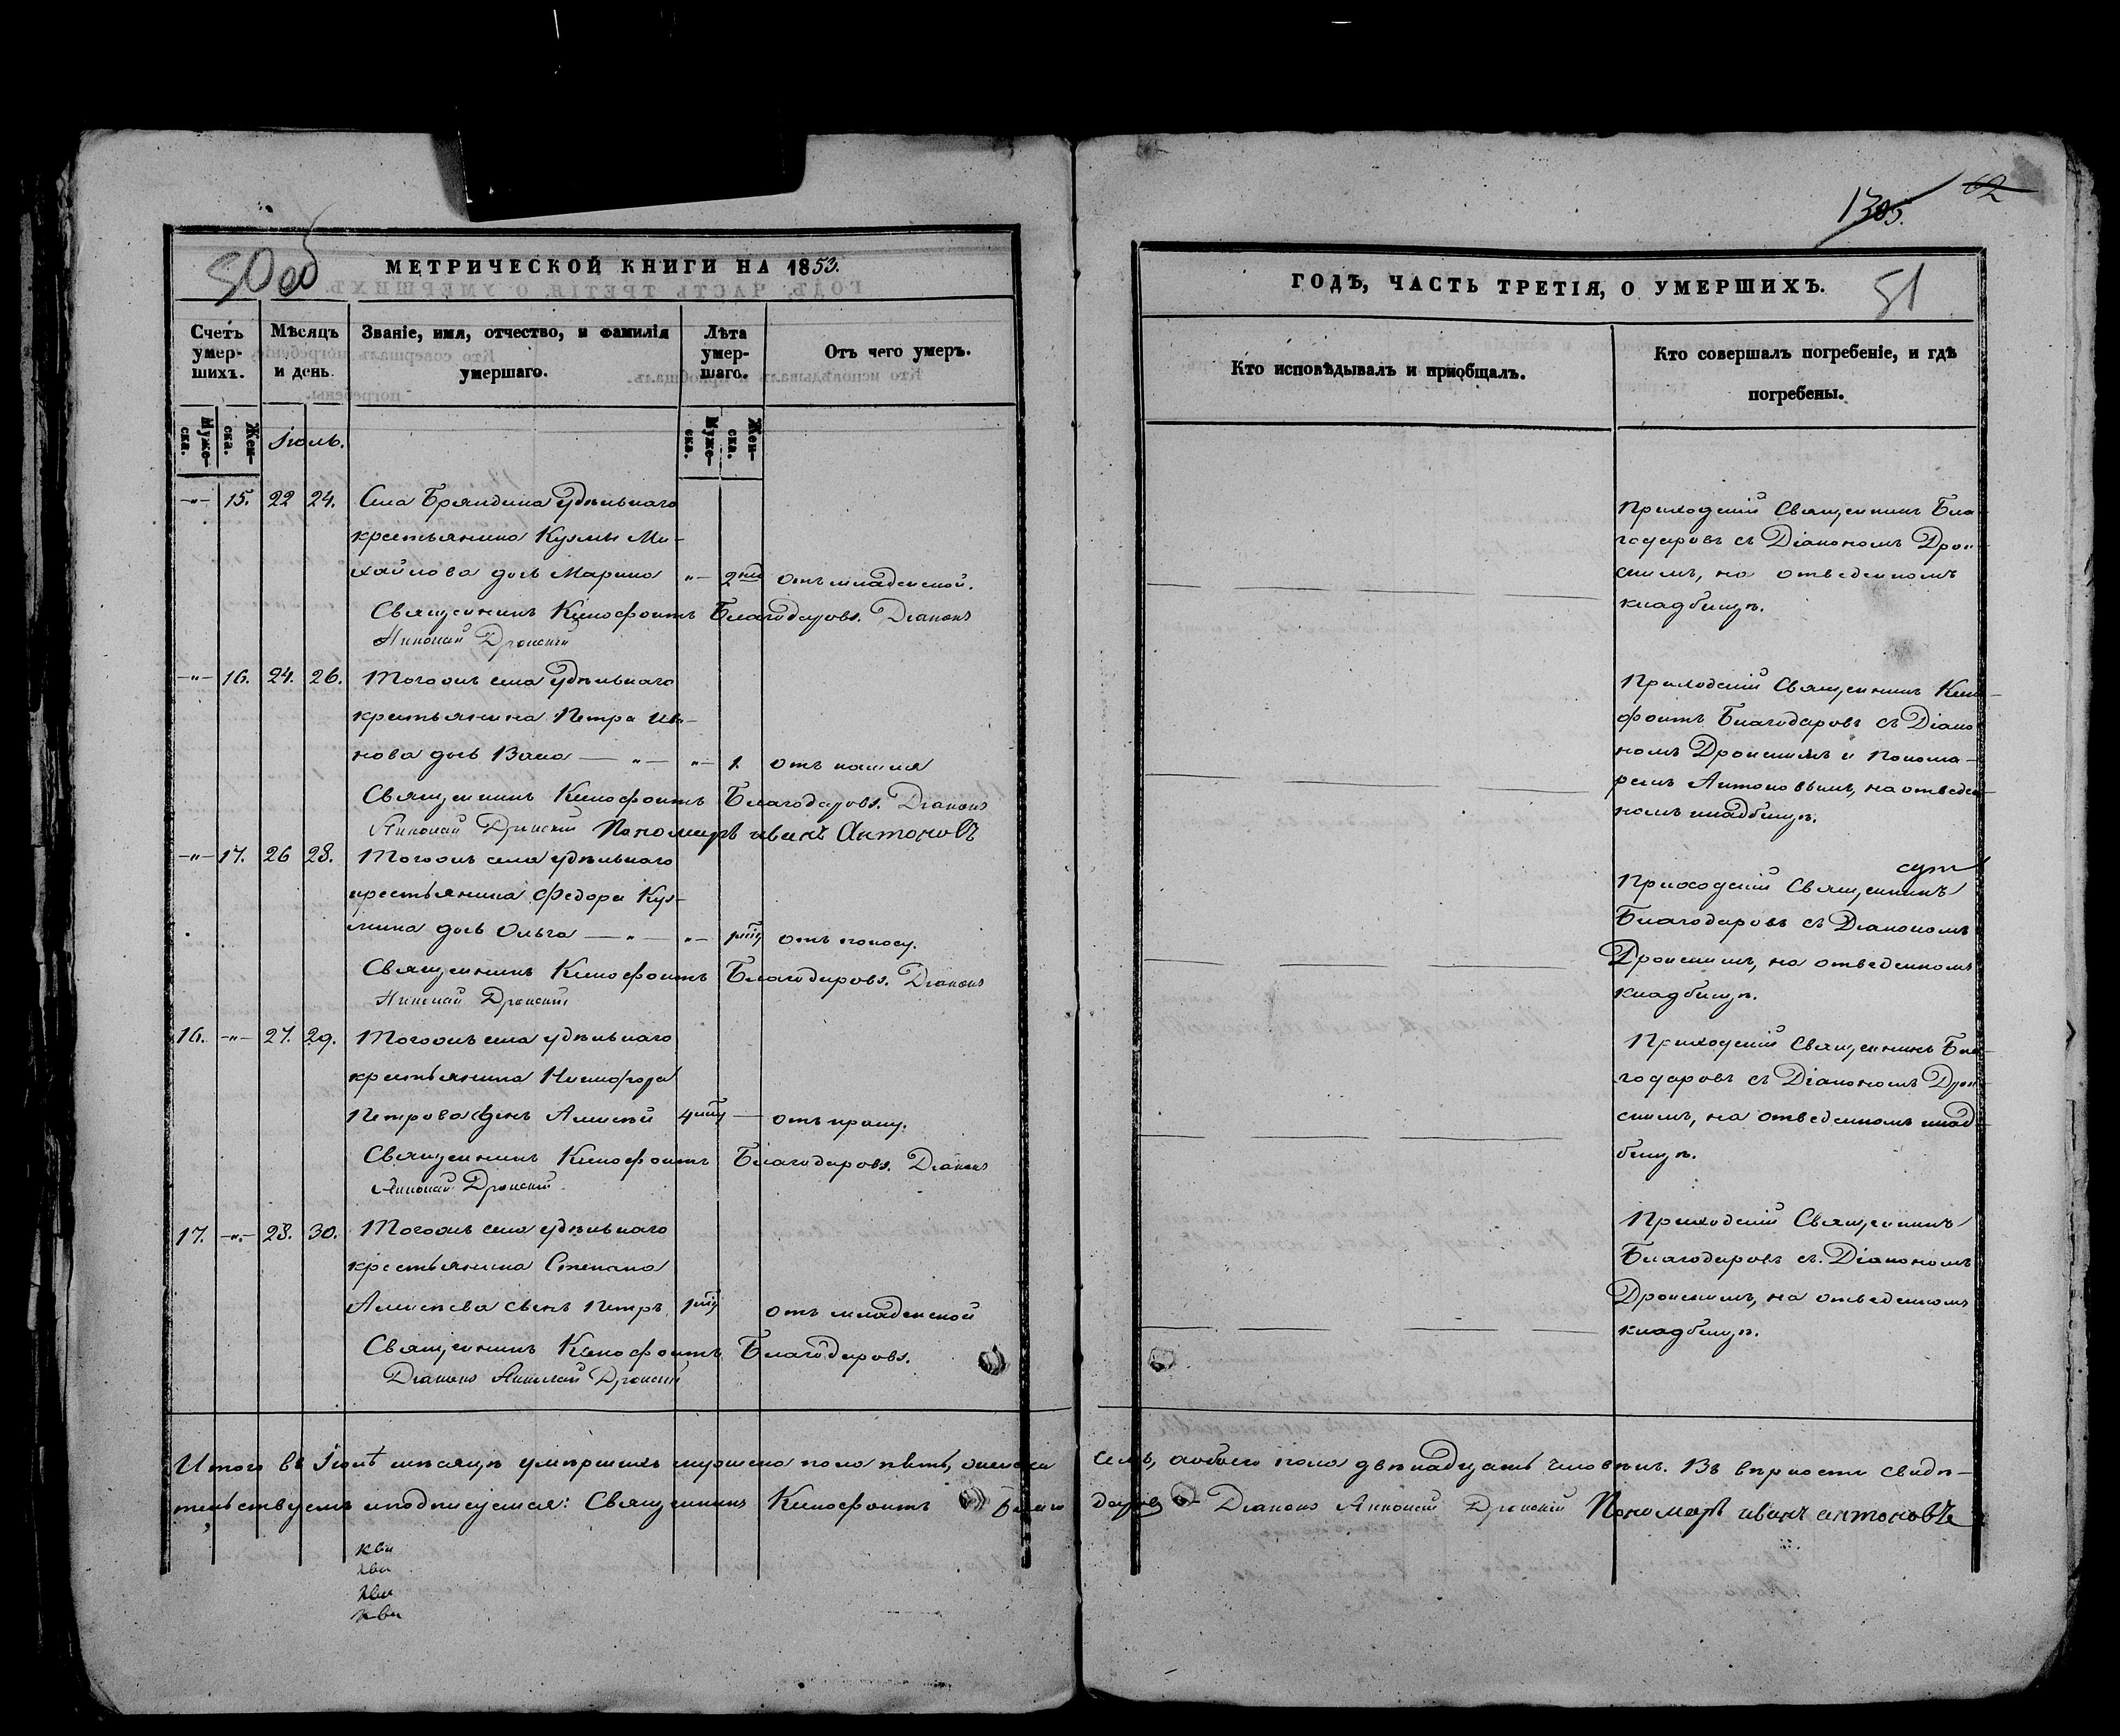 50 об
МЕТРИЧЕСКОЙ КНИГИ НА 1853.
Счетъ умер-шихъ.
Мѣсяцъ и день.
Званіе, имя, отчество, и фамилія умершаго.
Лѣта умер-шаго.
Отъ чего умеръ.
Муже-ска.
Жен-ска.
Іюль.
Муже-ска.
Жен-ска.
-"- 15. 22 24. Села Бряндина удѣльнаго
крестьянина Кузмы Ми-
хайлова дочь Марина "- 2 нед отъ младенской.
Священникъ Ксенофонтъ Благодаровъ. Діаконъ
Николай Дронскій
-"- 16. 24. 26. Тогожъ села удѣльнаго
крестьянина Петра Ива-
нова дочь Васа — "— "- 1. отъ кашля
Священникъ Ксенофонтъ Благодаровъ. Діаконъ
Николай Дронскій Пономарь иванъ Антоновъ
-"- 17. 26 28. Тогожъ села удѣльнаго
крестьянина Федора Куз-
мина дочь Ольга — "— "- отъ поносу.
Священникъ Ксенофонтъ Благодаровъ. Діаконъ
Николай Дронскій
16. -"- 27. 29. Тогожъ села удѣльнаго
крестьянина Никифора
Петрова сынъ Алексѣй — отъ
Священникъ Ксенофонтъ Благодаровъ. Діаконъ
Николай Дронскій
17. -"- 28. 30. Тогожъ села удѣльнаго
крестьянина Степана
Алексѣева сынъ Петръ отъ младенской
Священникъ Ксенофонтъ Благодаровъ.
Діаконъ Николай Дронскій
Итого въ Іюлѣ мѣсяцѣ умершихъ мужеска пола пять, женска
тельствуемъ и подписуемся: Священникъ Ксенофонтъ Благо
кви
кви
кви
кви
1305.
62
ГОДЪ, ЧАСТЬ ТРЕТІЯ, О УМЕРШИХЪ.
51
Кто исповѣдывалъ и пріобщалъ.
Кто совершалъ погребеніе, и гдѣ погребены.
Приходскій Священникъ Бла-
годаровъ съ Діакономъ Дрон-
скимъ, на отведенномъ
кладбищѣ.
Приходскій Священникъ Ксено-
фонтъ Благодаровъ съ Діако-
номъ Дронскимъ и Понома-
ремъ Антоновымъ, на отведен-
номъ кладбищѣ.
Приходскій Священникъ
Благодаровъ съ Діакономъ
Дронскимъ, на отведенномъ
кладбищѣ.
Приходскій Священникъ Бла-
годаровъ съ Діакономъ Дрон-
скимъ, на отведенномъ клад-
бищѣ.
Приходскій Священникъ
Благодаровъ съ Діакономъ
Дронскимъ, на отведенномъ
кладбищѣ.
семь, обоего пола двѣнадцать человѣкъ. Въ вѣрности свидѣ-
даровъ Діаконъ Николай Дронскій Пономарь иванъ антоновъ